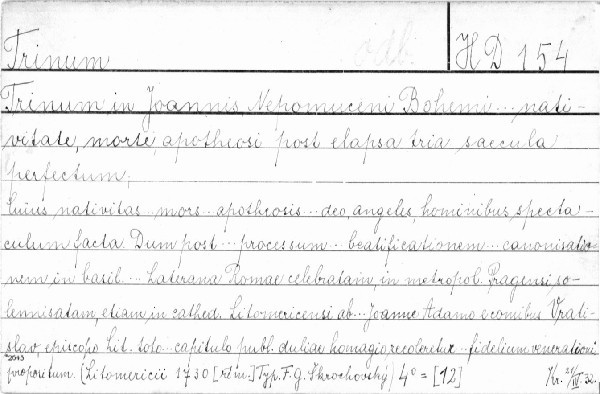 Trinum odb. HD 154
Trinum in Joannis Nepomuceni Bohemi ... nati-
vitate, morte, apotheosi post elapsa tria saecula
perfectum,
cuius nativitas ... mors ... apotheosis ... deo, angelis, hominibus, specta-
culum facta. Dum post ... processum ... beatificationem ... canonisatio-
nem in basil. ... Laterana Romae celebratam, in metropol. Pragensi so-
lennisatam, etiam in cathed. Litomericensi ab ... Joanne Adamo e comibus Vrati-
slav, episcopo Lit. toto ... capitulo publ. duliae homagio, recoleretur ... fidelium venerationi
propositum. (Litomericii 1730 [
] Typ. F. G. Skrochovský) 4° = [12] Kr. 32.